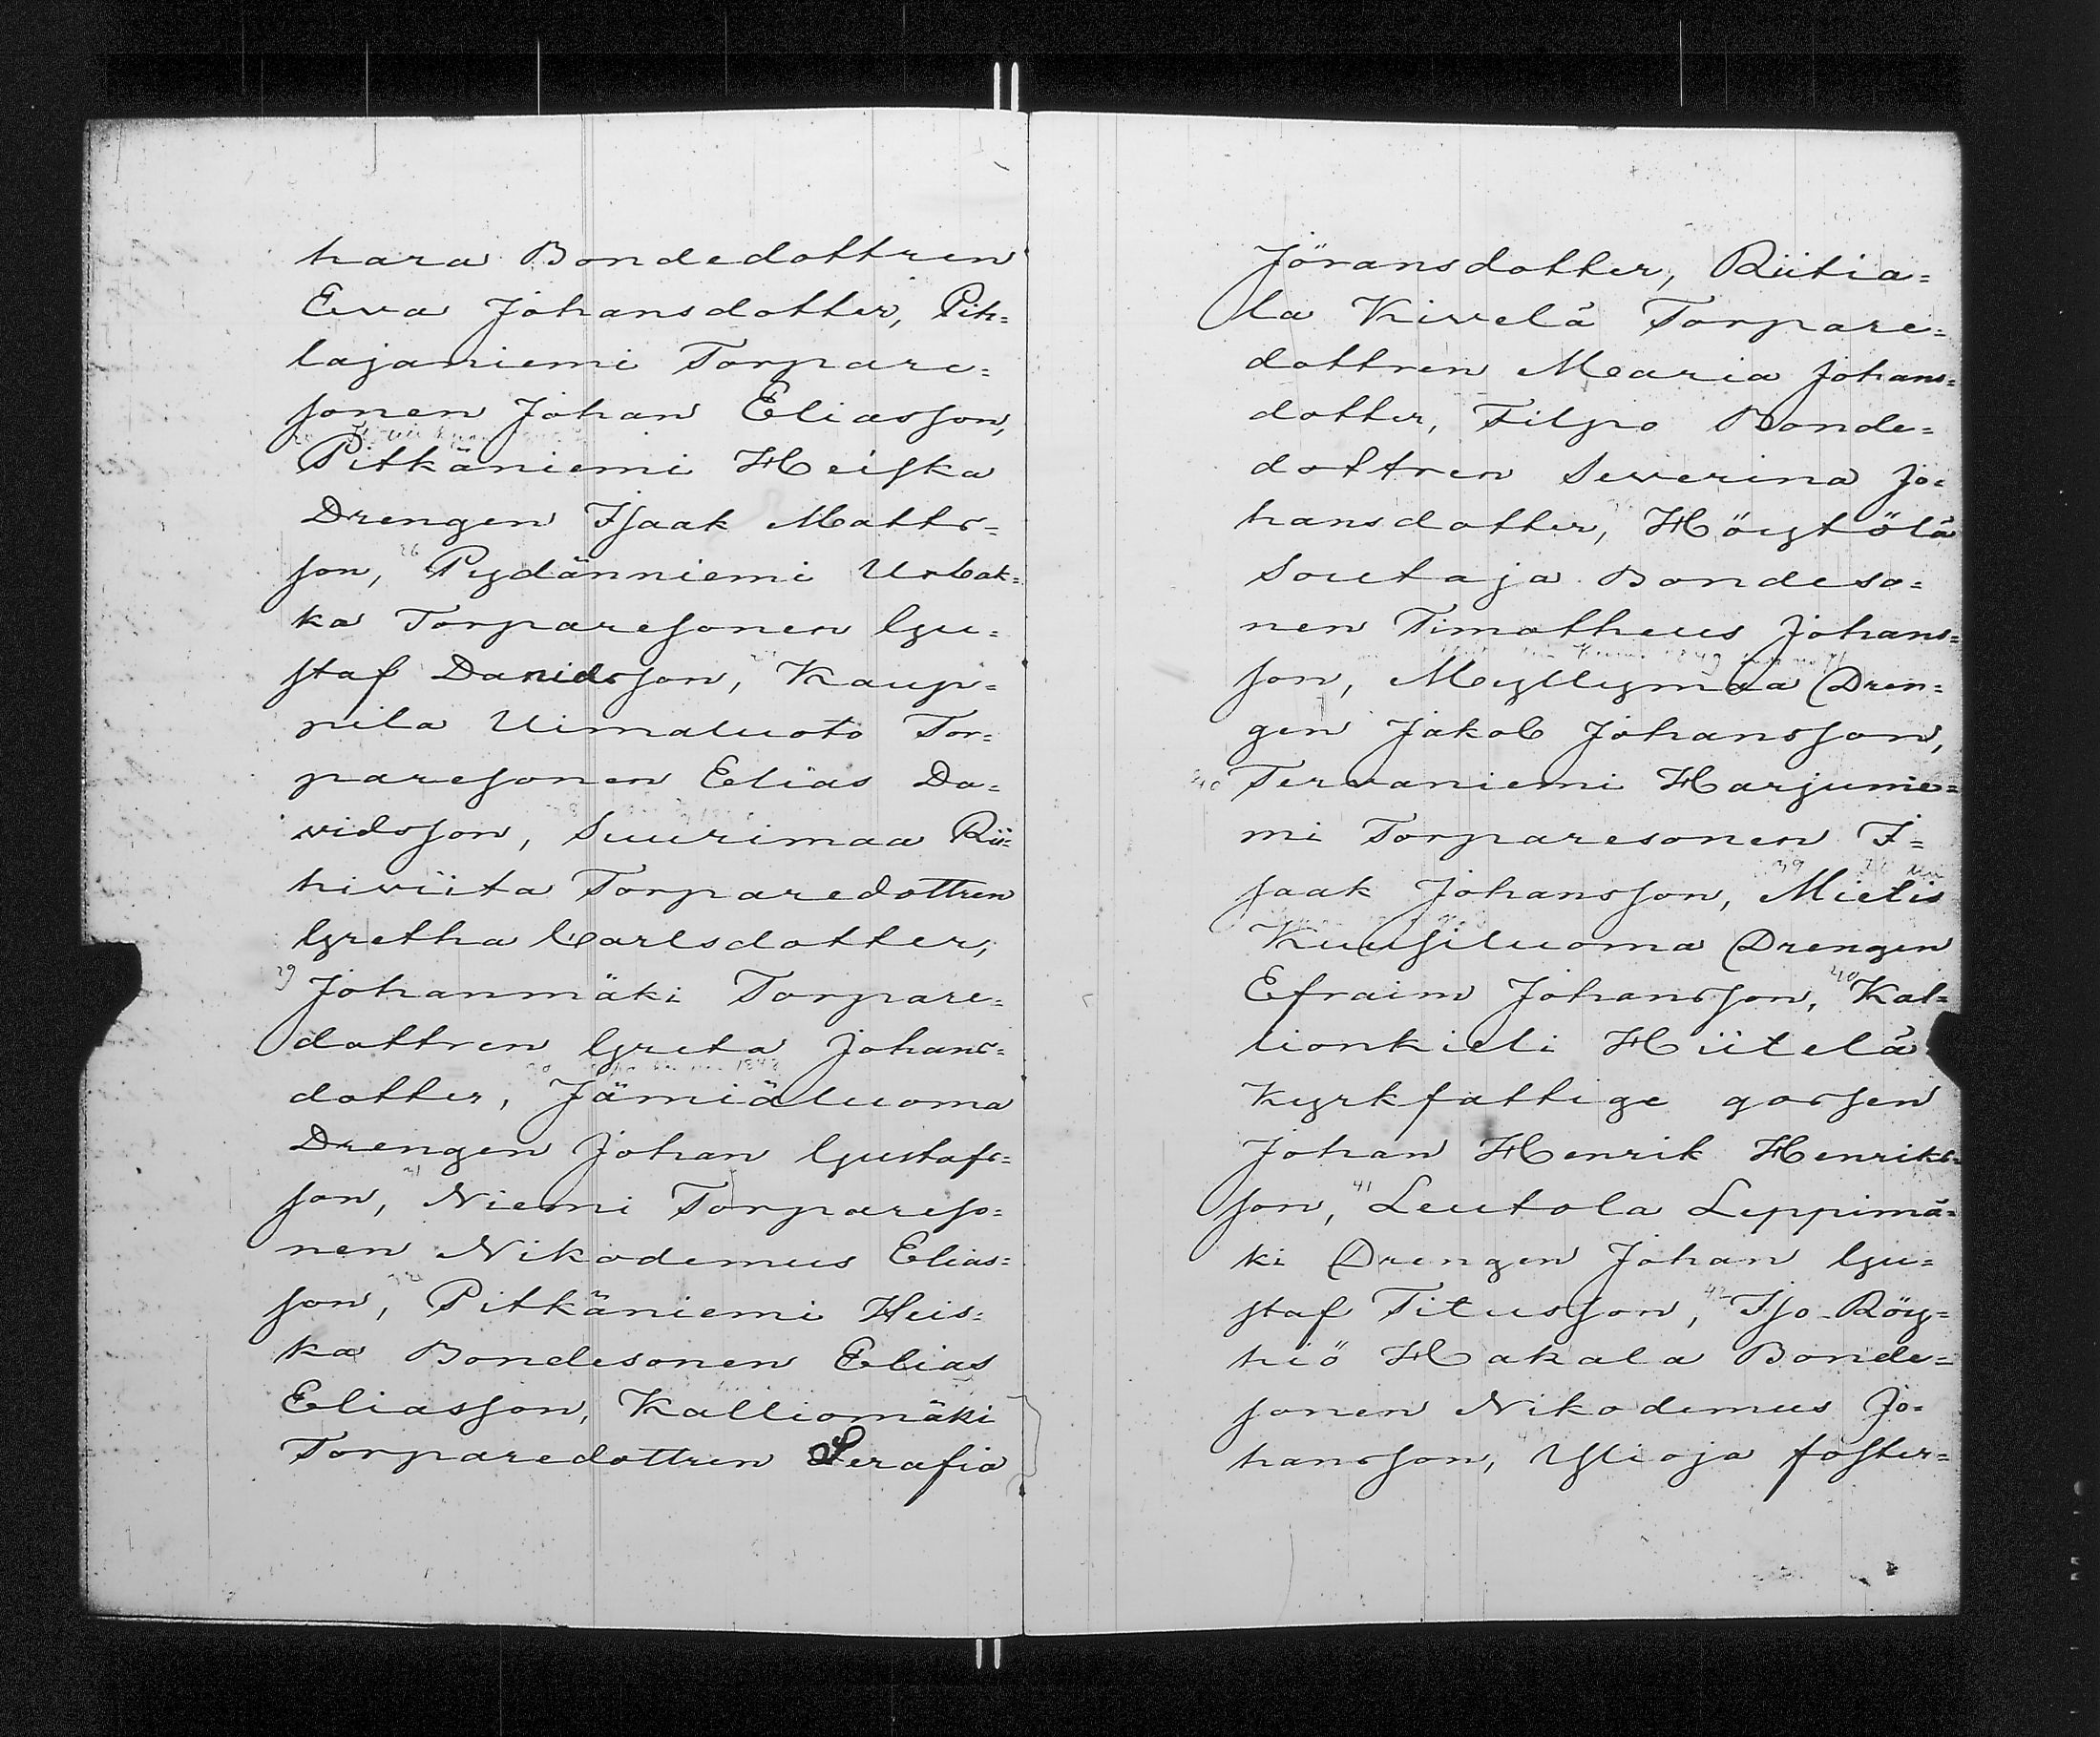 hara Bondedottren
Eva Johansdotter, Pih=
lajaniemi Torpare=
sonen Johan Eliasson,
Pitkäniemi Heiska
Drengen Isaak Matts=
26
son, Pydänniemi Urbak=
ka Torparesonen Gu=
staf Davidsson, Kaup=
pila Uimaluoto Tor=
paresonen Elias Da=
vidsson, Suurimaa Rii=
hiviita Torparedottren
Gretha Carlsdotter,
29 Johanmäki Torpare=
dottren Greta Johans=
dotter, Jämiäluoma
Drengen Johan Gustafs=
31
son, Niemi Torpareso=
nen Nikodemus Elias=
son, Pitkäniemi Heis=
ka Bondesonen Elias
Eliasson, Kalliomäki
Torparedottren Serafia
Jöransdotter, Riitia=
la Kivelä Torpare=
dottren Maria Johans=
dotter, Filpo Bonde=
dottren Severina Jo=
hansdotter, Höytölä
Soutaja Bondeso=
nen Timotheus Johans=
son, Myllymaa Dren=
gen Jakob Johansson,
Tervaniemi Harjunie=
mi Torparesonen I=
39
saak Johansson, Mietis
Kuusiluoma Drengen
40
Efraim Johansson, Kal=
lionkieli Hiitelä
Kyrkfattige gossen
Johan Henrik Henriks=
41
son, Leutola Leppimä=
ki Drengen Johan Gu=
42
staf Titusson, Iso-Röy=
hiö Hakala Bonde=
sonen Nikodemus Jo=
hansson, Ylioja foster=